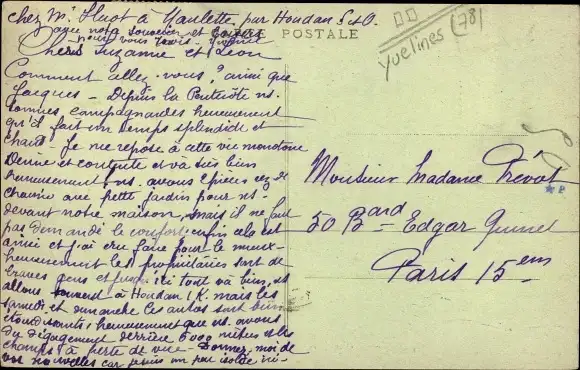 chez Mr Huot à Maulette par Houdan S et O.
ayez notre souvenir et
pour vous tous
POSTALE
Yvelines (78)
Chers Suzanne et Léon
Comment allez-vous? ainsi que
Jacques - Depuis la Pentecôte ns.
sommes campagnardes heureusement
qu'il fait un temps splendide et
chaud. Je me repose à cette vie monotone
Denise est contente et va très bien
heureusement, ns. avons 2 pièces rez de
chaussée avec petit jardin pour ns.
devant notre maison, mais il ne faut
pas demander le confort; enfin cela est
ainsi et j'ai cru faire pour le mieux -
heureusement les propriétaires sont de
braves gens et ici tout va bien, ns
allons souvent à Houdan 1 K. mais les
samedi et dimanche les autos sont bien
étourdissants; heureusement que ns. avons
du dégagement derrière 6000 mètres et les
champs à perte de vue - Donnez moi de
vos nouvelles car suis un peu isolée ici -
Monsieur Madame Prévot
50 Bard Edgar Quinet
Paris 15em